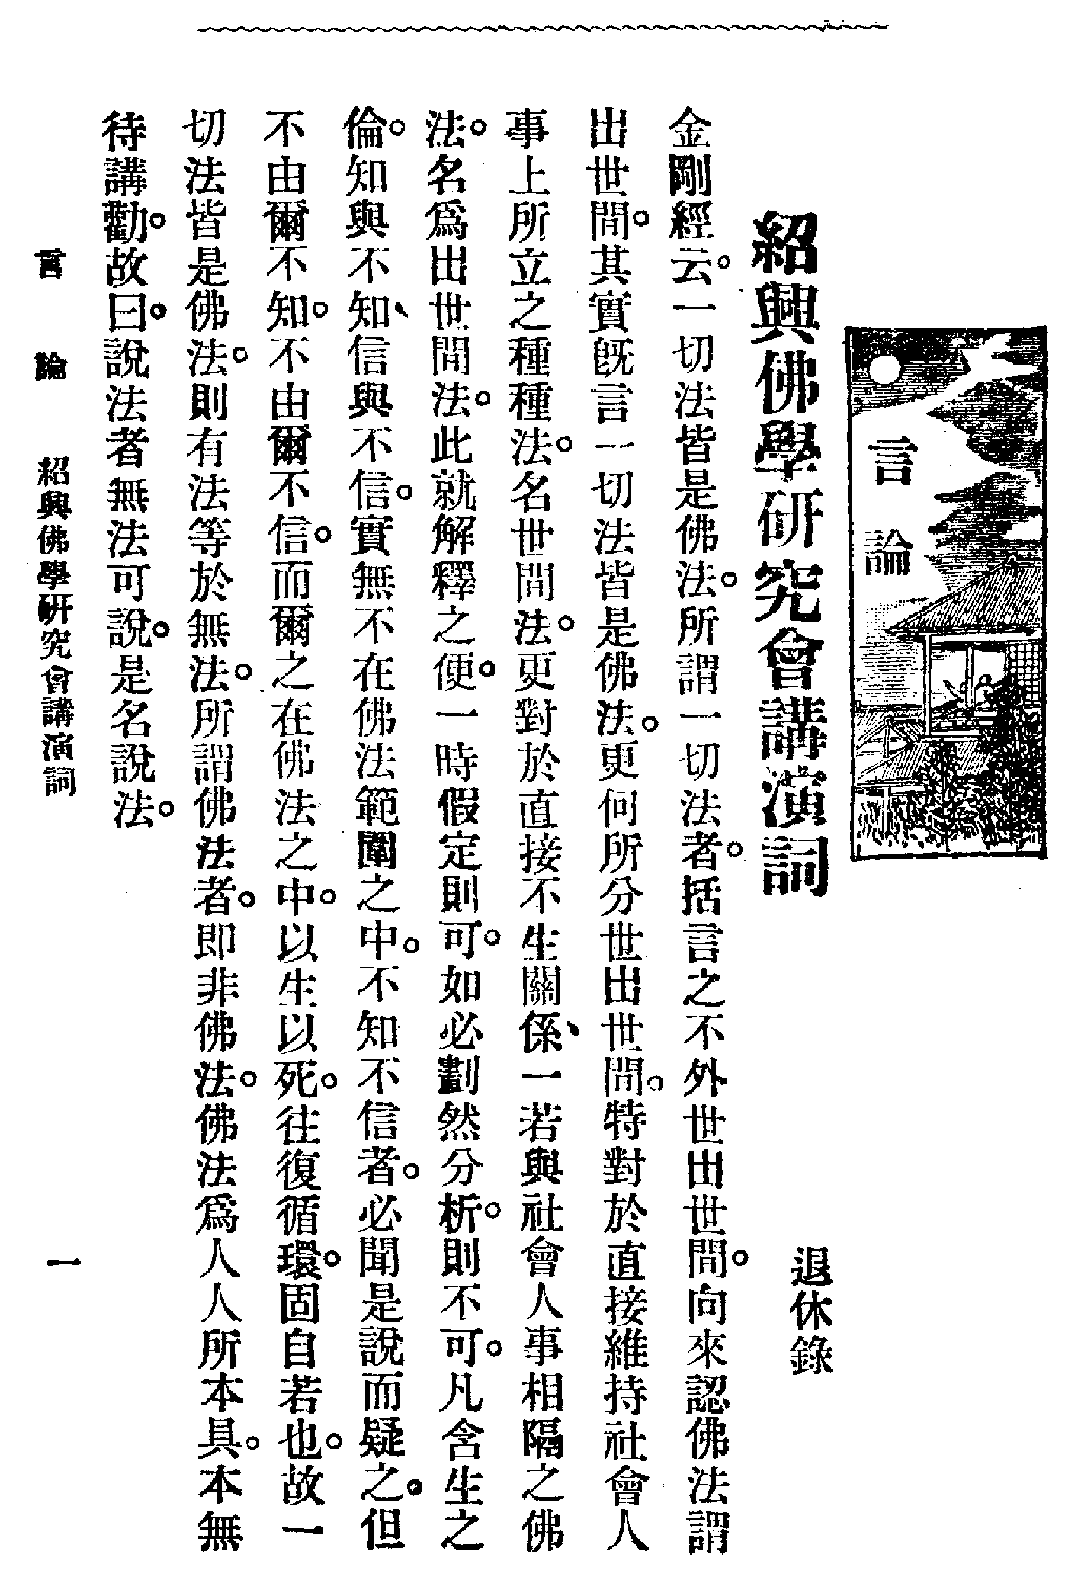 言論
紹興佛學研究會講演詞
退休錄
金剛經云。一切法皆是佛法。所謂一切法者。括言之不外世出世間。向來認佛法謂
出世間。其實既言一切法皆是佛法。更何所分世出世間。特對於直接維持社會人
事上所立之種種法。名世間法。更對於直接不生關係、一若與社會人事相隔之佛
法。名爲出世間法。此就解釋之便。一時假定則可。如必劃然分析。則不可。凡含生之
倫。知與不知、信與不信。實無不在佛法範圍之中。不知不信者。必聞是說而疑之。但
不由爾不知。不由爾不信。而爾之在佛法之中。以生以死。往復循環。固自若也。故一
切法皆是佛法。則有法等於無法。所謂佛法者。即非佛法。佛法爲人人所本具。本無
待講勸。故曰。說法者無法可說。是名說法。
言論 紹興佛學研究會講演詞 一